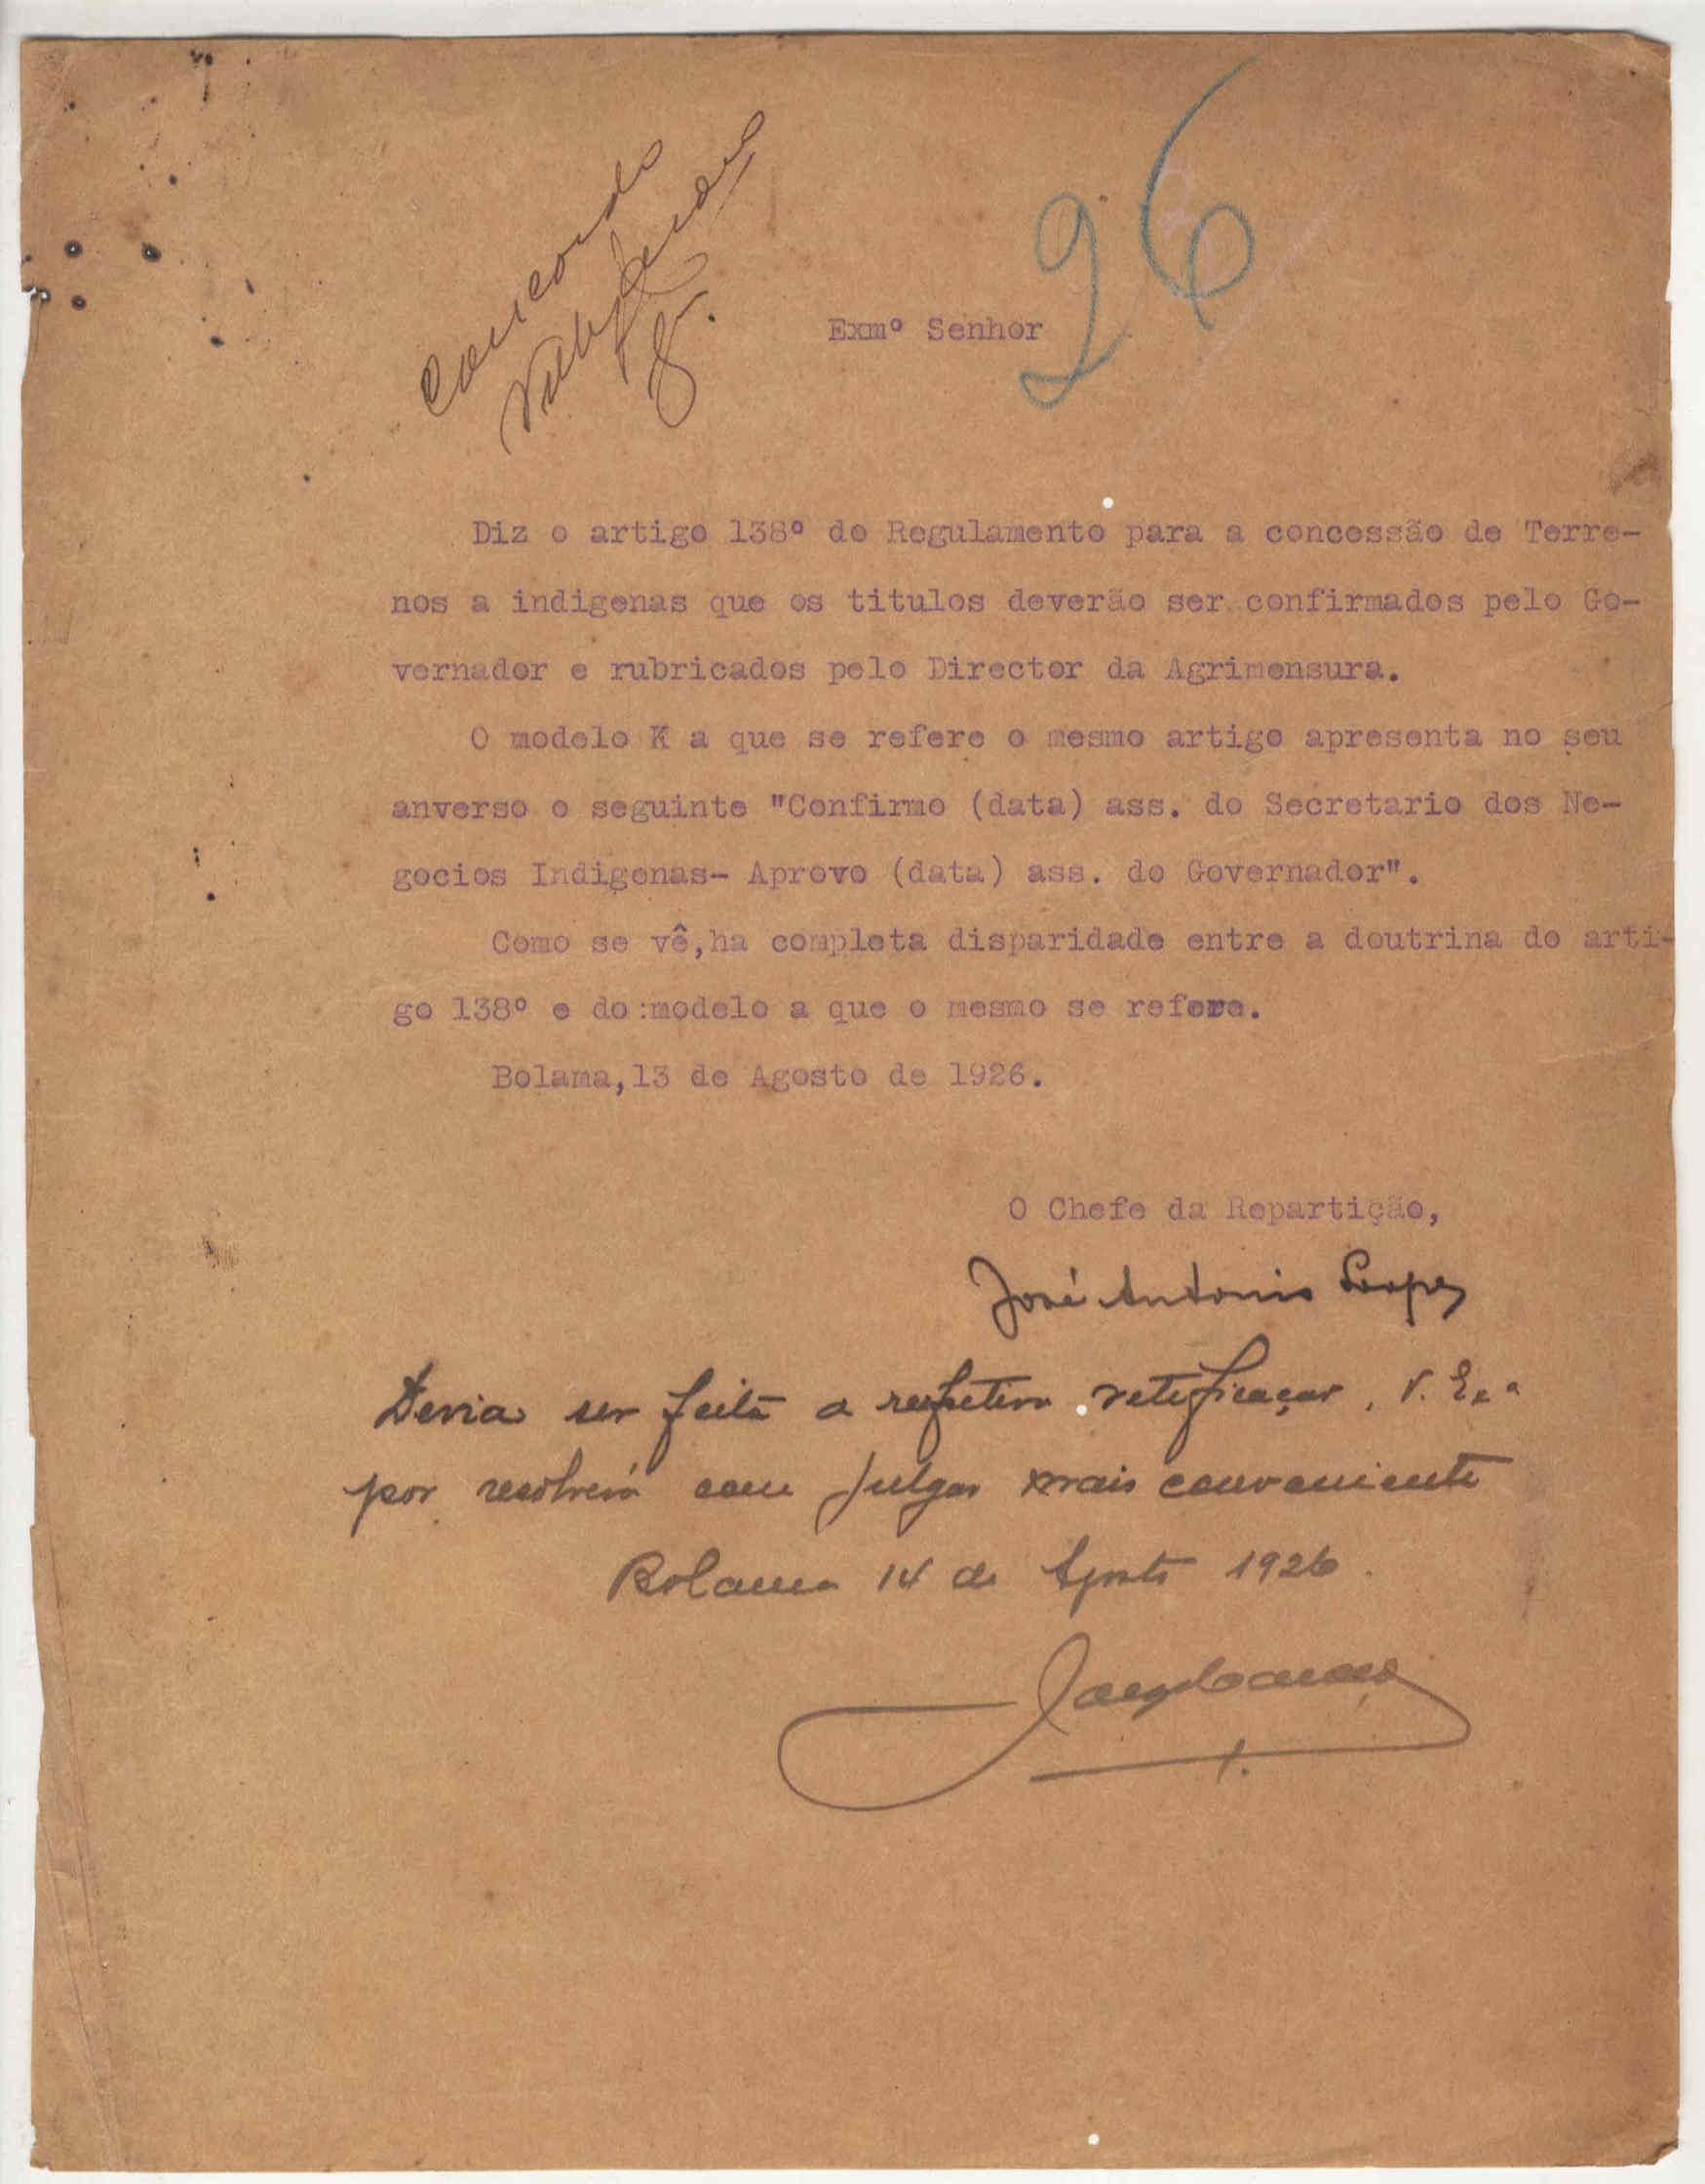 Concordo
26
Exmº Senhor
Diz o artigo 138º do Regulamento para a concessão de Terre-
nos a indigenas que os titulos deverão ser confirmados pelo Go-
vernador e rubricados pelo Director da Agrimensura.
O modelo K a que se refere o mesmo artigo apresenta no seu
anverso o seguinte "Confirmo (data) ass. do Secretario dos Ne-
gocios Indigenas- Aprovo (data) ass. do Governador".
Como se vê,ha completa disparidade entre a doutrina do arti-
go 138º e do:modelo a que o mesmo se refere.
Bolama,13 de Agosto de 1926.
O Chefe da Repartição,
José Antonio Lopes
Devia ser feita a respetiva retificaçao, V. Exª
por resolverá com julgar mais conveniente
Bolama 14 de Agosto 1926.